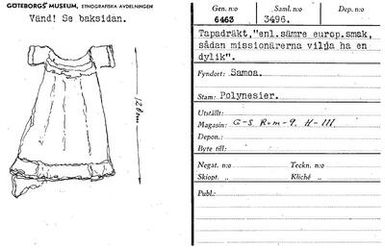 GÖTEBORGS MUSEUM, ETNOGRAFISKA AVDELNINGEN
Vänd! Se baksidan.
128cm
Gen. n:o
6463
Saml. n:o
3496.
Dep. n:o
Tapadräkt,"enl.sämre europ.smak,
sådan missionärerna vilja ha en
dylik".
Fyndort: Samoa.
Stam: Polynesier.
Utställt:
Magasin: G-S Rum-9. H-III.
Depon.:
Byte till:
Negat. n:o
Teckn. n:o
Skiopt. „
Kliché „
Publ.: